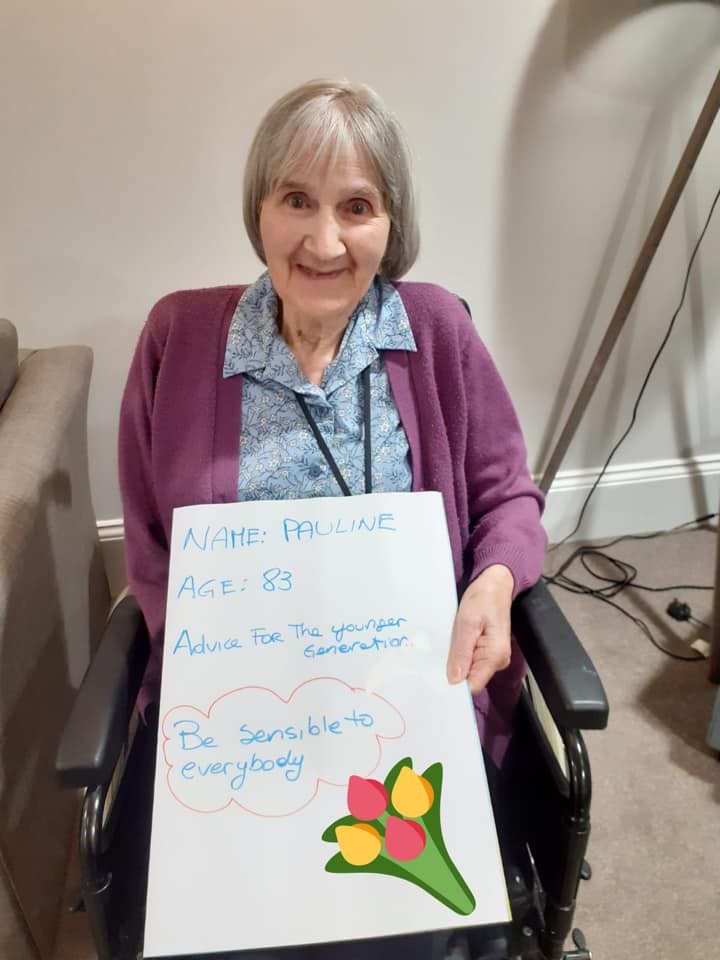 NAME: PAULINE
AGE: 83
Advice For The younger
Generation
Be sensible to
everybody